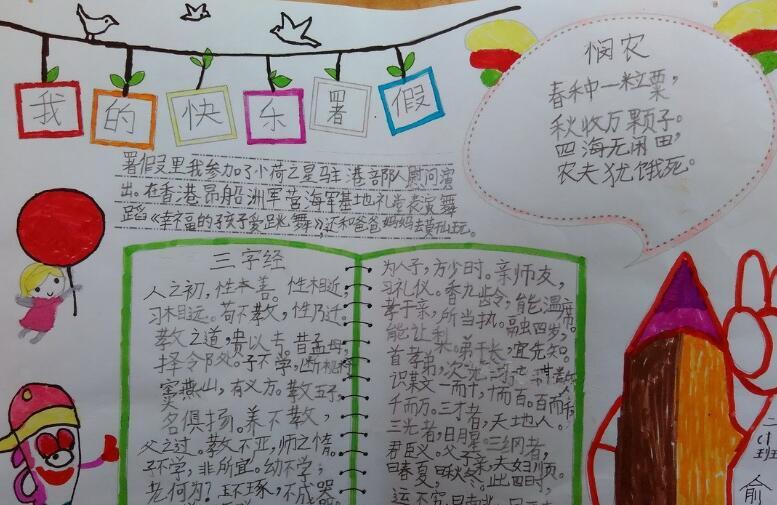 我的快乐署假
悯农
春种一粒粟，
秋收万颗子。
四海无闲田，
农夫犹饿死。
署假里我参加了小荷之星驻港部队慰问演
出。在香港昂船洲军营海军基地礼堂表演舞
蹈《幸福的孩子爱跳舞》，还和爸爸妈妈去黄山玩。
三字经
人之初，性本善。性相近，
习相远。苟不教，性乃迁。
教之道，贵以专。昔孟母，
择邻处。子不学，断机杼
窦燕山，有义方。教五子，
名俱扬。养不教，
父之过。教不严，师之惰。
子不学，非所宜。幼不学，
老何为？玉不琢，不成器
为人子，方少时。亲师友，
习礼仪。香九龄，能温席。
孝于亲，所当执。融四岁，
能让梨。弟于长，宜先知。
首孝弟，次
识某文一而十，十而百。百而千
千而万。三才者，天地人。
三光者，日月星。三纲者，
君臣义。父子亲，夫妇顺。
曰春夏，曰秋冬。此四时，
运不穷。曰南北，曰
二
小
班
俞